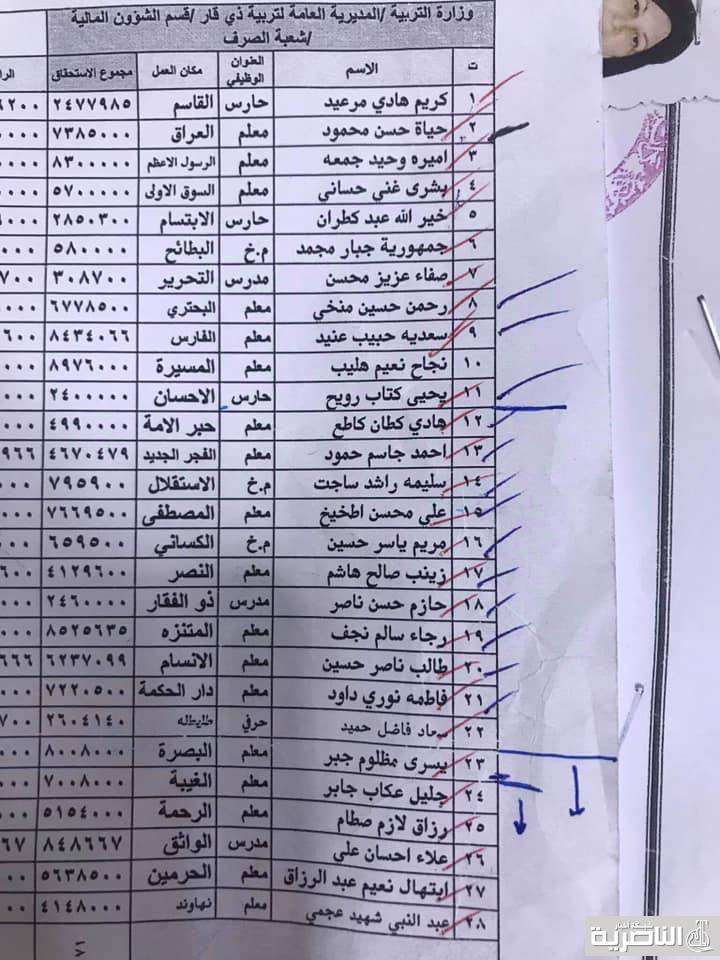 وزارة التربية /المديرية العامة لتربية ذي قار /قسم الشؤون المالية
/شعبة الصرف
ت الاسم العنوان الوظيفي مكان العمل مجموع الاستحقاق
١ كريم هادي مرعيد حارس القاسم ٢٤٧٧٩٨٥
٢ حياة حسن محمود معلم العراق ٧٣٨٥٠٠٠
٣ اميره وحيد جمعه معلم الرسول الاعظم ٨٣٠٠٠٠٠
٤ بشرى غني حساني معلم السوق الاولى ٥٧٠٠٠٠٠
٥ خير الله عبد كطران حارس الابتسام ٢٨٥٠٣٠٠
٦ جمهورية جبار محمد م.خ البطائح ٥٨٠٠٠٠٠
٧ صفاء عزيز محسن مدرس التحرير ٣٠٨٧٠٠
٨ رحمن حسين منخي معلم البحتري ٦٧٧٨٥٠٠
٩ سعديه حبيب عنيد معلم الفارس ٨٤٣٤٠٦٦
١٠ نجاح نعيم هليب معلم المسيرة ٨٩٧٦٠٠٠
١١ يحيى كتاب رويح حارس الاحسان ٢٤٠٠٠٠٠
١٢ هادي كطان كاطع معلم حبر الامة ٤٩٩٠٠٠٠
١٣ احمد جاسم حمود معلم الفجر الجديد ٤٦٧٠٤٧٩
١٤ سليمه راشد ساجت م.خ الاستقلال ٧٩٥٩٠٠
١٥ علي محسن اطخيخ معلم المصطفى ٧٦٦٩٥٠٠
١٦ مريم ياسر حسين م.خ الكسائي ٦٥٩٥٠٠
١٧ زينب صالح هاشم معلم النصر ٤١٢٩٦٠٠
١٨ حازم حسن ناصر مدرس ذو الفقار ٢٤٦٠٠٠٠
١٩ رجاء سالم نجف معلم المتنزه ٨٥٢٥٦٣٥
٢٠ طالب ناصر حسين معلم الانسام ٦٢٣٧٠٩٩
٢١ فاطمه نوري داود معلم دار الحكمة ٧٢٢٠٥٠٠
٢٢ سعاد فاضل حميد حرفي طليطله ٢٦٠٤١٤٠
٢٣ يسرى مظلوم جبر معلم البصرة ٨٠٠٨٠٠٠
٢٤ جليل عكاب جابر معلم الغيبة ٧٠٠٨٠٠٠
٢٥ رزاق لازم صطام معلم الرحمة ٥١٥٤٠٠٠
٢٦ علاء احسان علي مدرس الواثق ٨٤٨٦٦٧
٢٧ ابتهال نعيم عبد الرزاق معلم الحرمين ٥٦٣٨٥٠٠
٢٨ عبد النبي شهيد عجمي معلم نهاوند ٤١٤٨٠٠٠
٧١
شبكة اخبار الناصرية